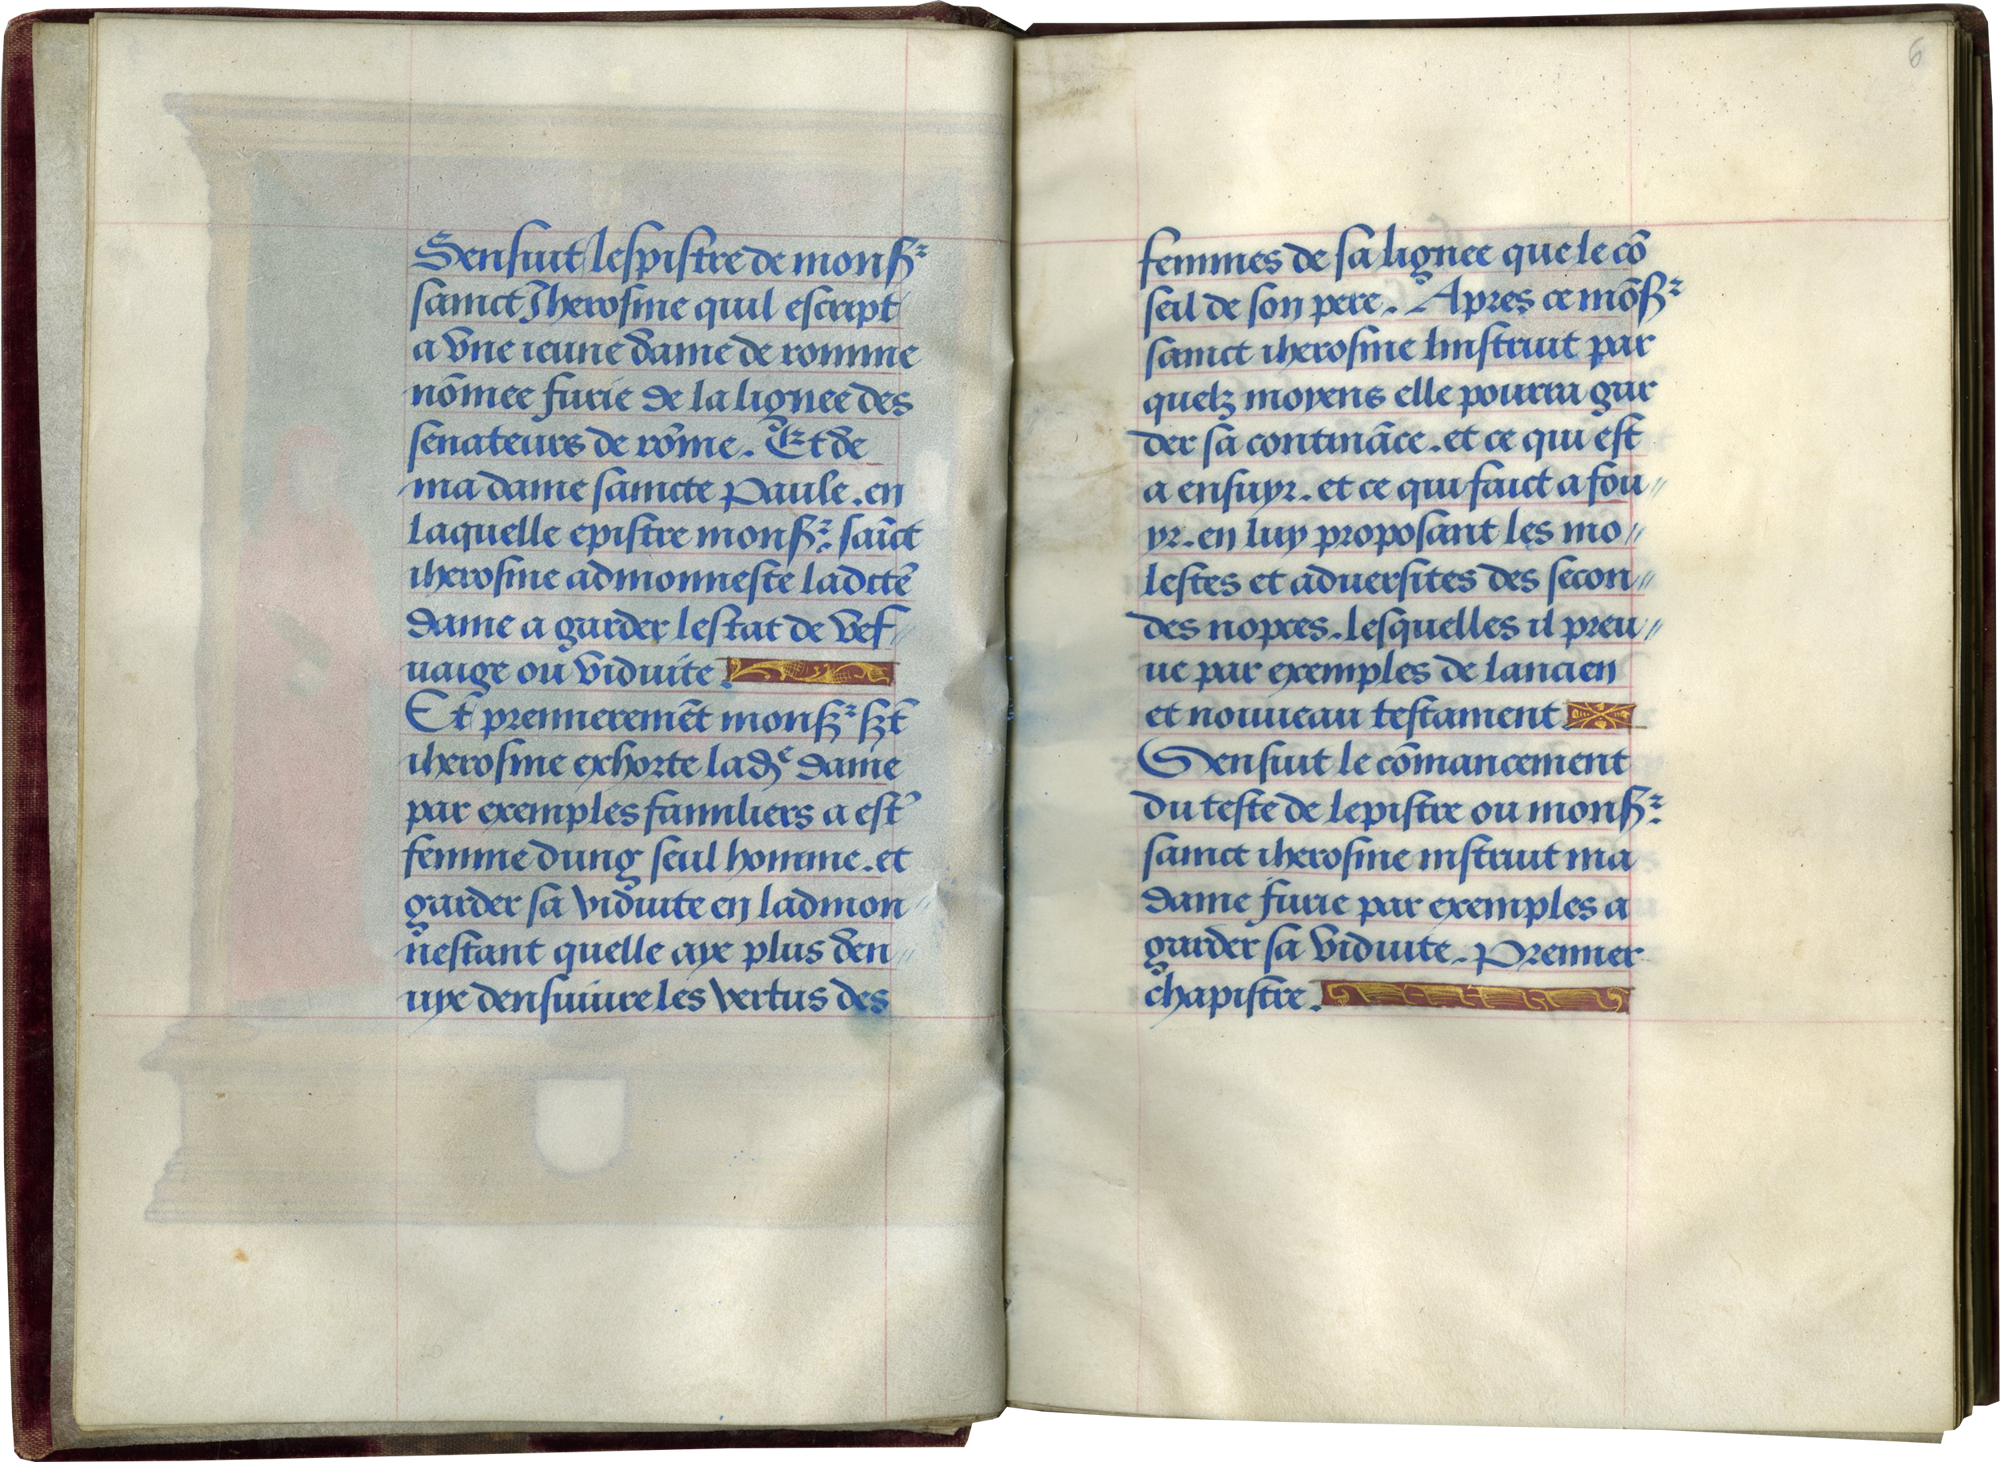 Sensuit lespistre de monsr
sainct Jherosme quil escript
a vne ieune dame de romme
nōmee furie de la lignee des
senateurs de rōme. Et de
ma dame saincte Paule. en
laquelle epistre monsr. saīct
iherosme admonneste ladcte
dame a garder lestat de vef〃
uaige ou viduite.
Et premieremēt monsr sct
iherosme exhorte lade dame
par exemples familiers a est'
femme dung seul homme. et
garder sa viduite en ladmon〃
nestant quelle aye plus den〃
uye densuiure les vertus des
6
femmes de sa lignee que le cō
seil de son pere. Apres ce mōsr
sainct iherosme linstruit par
quelz moyens elle pourra gar
der sa contināce. et ce qui est
a ensuyr. et ce qui faict a fou〃
yr. en luy proposant les mo〃
lestes et aduersites des secon〃
des nopces. lesquelles il preu〃
ue par exemples de lancien
et nouueau testament
Sensuit le cōmancement
du teste de lepistre ou monsr.
sainct iherosme instruit ma
dame furie par exemples a
garder sa viduite. Premier
chapistre.